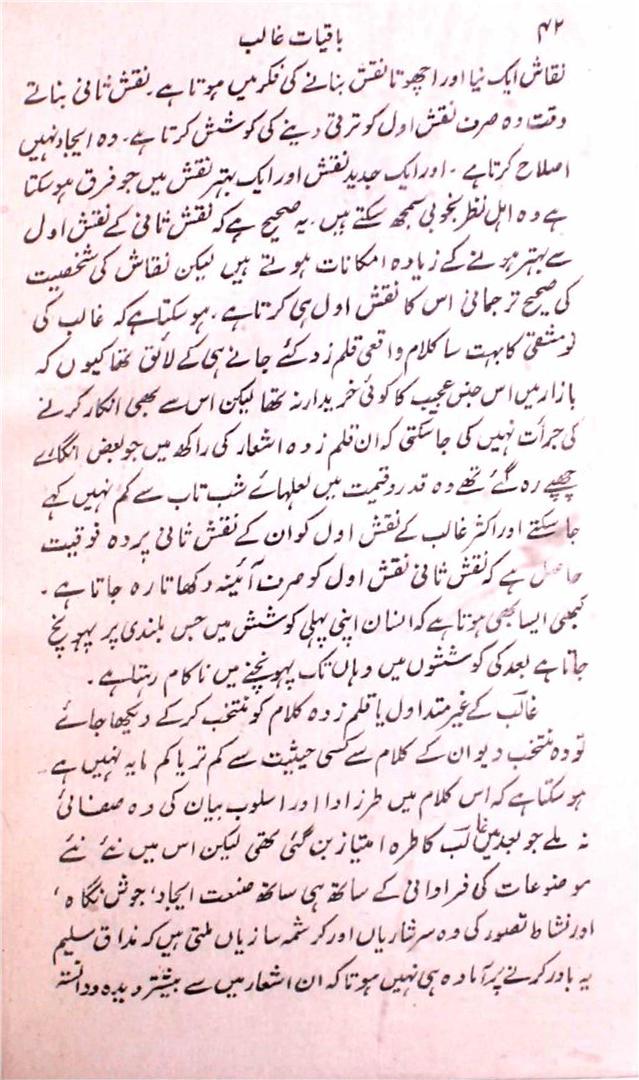 ۴۲
باقیات غالب
نقاش ایک نیا اور اچھوتا نقش بنانے کی فکر میں ہوتا ہے۔ نقش ثانی بناتے
وقت وہ صرف نقش اول کو ترقی دینے کی کوشش کرتا ہے۔ وہ ایجاد نہیں
اصلاح کرتا ہے۔ اور ایک جدید نقش اور ایک بہتر نقش میں جو فرق ہو سکتا
ہے وہ اہل نظر بخوبی سمجھ سکتے ہیں۔ یہ صحیح ہے کہ نقش ثانی کے نقش اول
سے بہتر ہونے کے زیادہ امکانات ہوتے ہیں لیکن نقاش کی شخصیت
کی صحیح ترجمانی اس کا نقش اول ہی کرتا ہے۔ ہو سکتا ہے کہ غالب کی
نو مشقی کا بہت سا کلام واقعی قلم زد کئے جانے ہی کے لائق تھا کیوں کہ
بازار میں اس جنس عجیب کا کوئی خریدار نہ تھا لیکن اس سے بھی انکار کرنے
کی جرأت نہیں کی جا سکتی کہ ان قلم زدہ اشعار کی راکھ میں جو بعض انگارے
چھپے رہ گئے تھے وہ قدر و قیمت میں لعلہائے شب تاب سے کم نہیں کہے
جا سکتے اور اکثر غالب کے نقش اول کو ان کے نقش ثانی پر وہ فوقیت
حاصل ہے کہ نقش ثانی نقش اول کو صرف آئینہ دکھاتا رہ جاتا ہے۔
کبھی ایسا بھی ہوتا ہے کہ انسان اپنی پہلی کوشش میں جس بلندی پر پہونچ
جاتا ہے بعد کی کوششوں میں وہاں تک پہونچنے میں ناکام رہتا ہے۔
غالب کے غیر متداول یا قلم زدہ کلام کو منتخب کر کے دیکھا جائے
تو وہ منتخب دیوان کے کلام سے کسی حیثیت سے کم تر یا کم مایہ نہیں ہے۔
ہو سکتا ہے کہ اس کلام میں طرز ادا اور اسلوب بیان کی وہ صفائی
نہ ملے جو بعد میں غالب کا طرہ امتیاز بن گئی تھی لیکن اس میں نئے نئے
موضوعات کی فراوانی کے ساتھ ہی ساتھ صنعت ایجاد، جوش نگاہ،
اور نشاط تصور کی وہ سرشاریاں اور کرشمہ سازیاں ملتی ہیں کہ مذاق سلیم
یہ باور کرنے پر آمادہ ہی نہیں ہوتا کہ ان اشعار میں سے بیشتر دیدہ و دانستہ